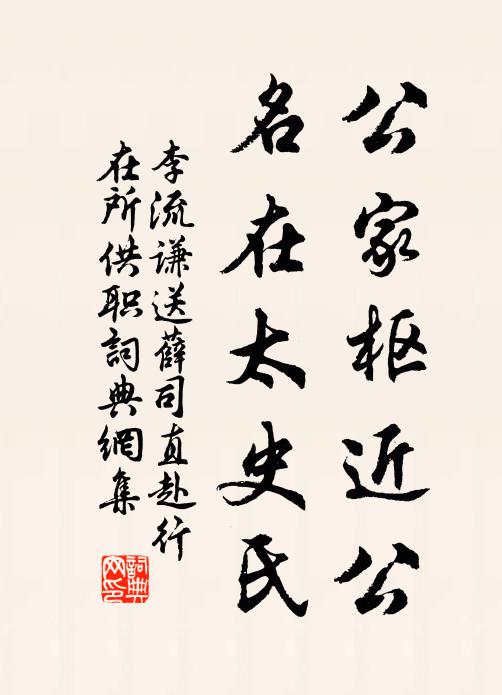 公家枢近公
名在太史氏
李流谦送薛司直赴行
在所供职詞典網集
詞典网印